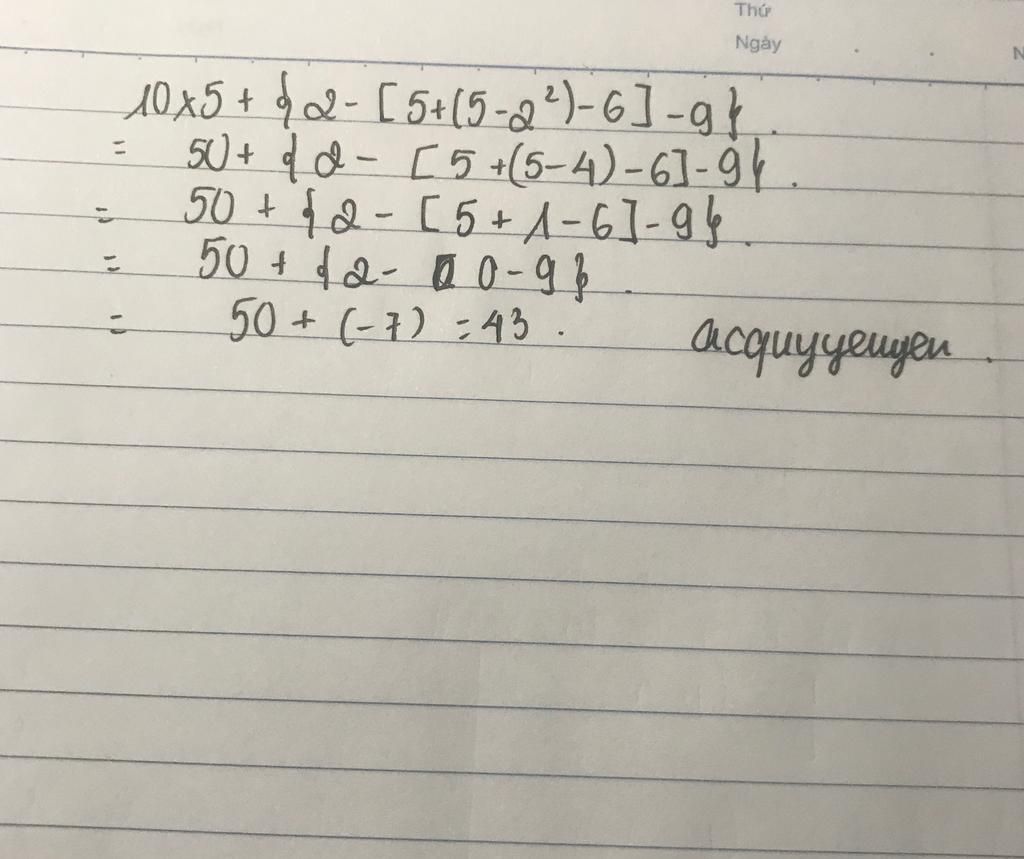 Thứ
Ngày
N
10×5 + { 2 - [ 5+(5-2²)-6] -9}.
= 50+ { 2 - [ 5 +(5-4) -6]-9}.
= 50 + { 2 - [ 5 + 1 - 6] - 9}.
= 50 + { 2 - 0 - 9 }.
= 50 + (-7) = 43 .
acquyyenyen .